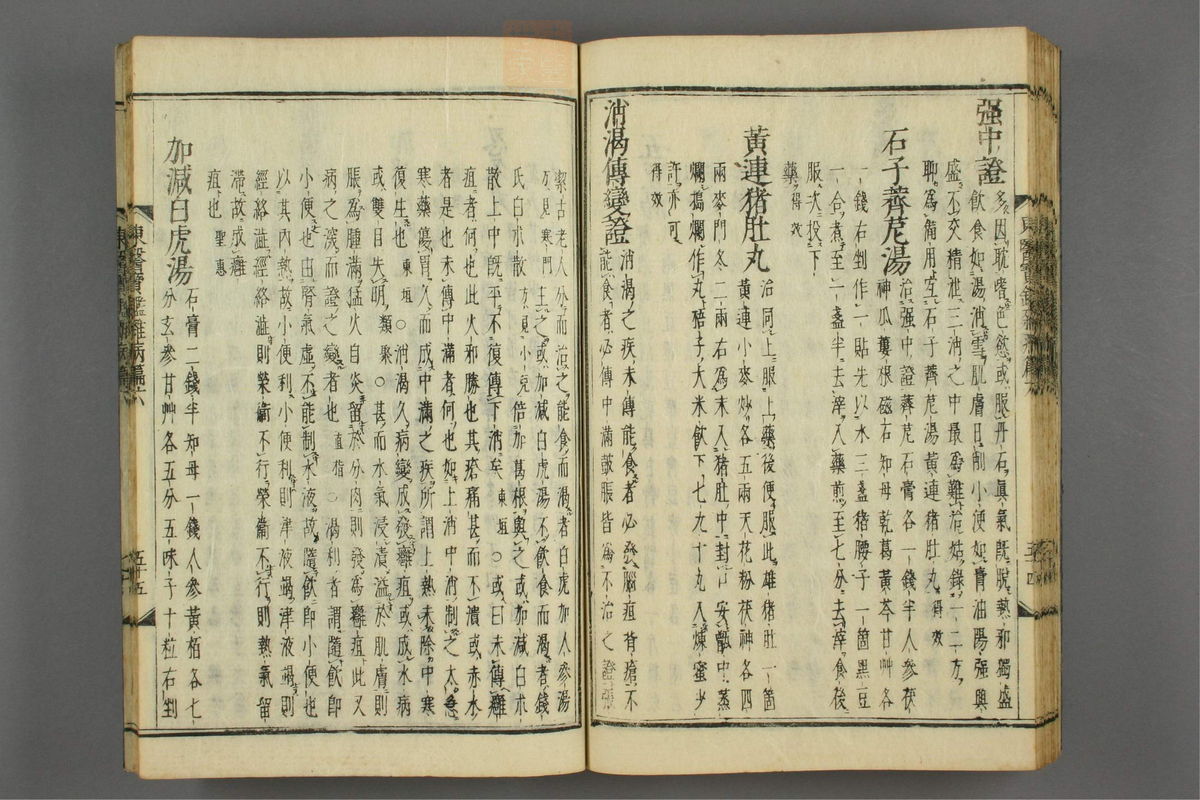 强中證 多因耽嗜色慾或服丹石眞氣旣脫熱邪獨盛
飮食如湯消雪肌膚日削小便如膏油陽强興
盛不交精泄三消之中最爲難治姑錄一二方
聊爲備用宜石子薺苨湯黃連猪肚丸得效
石子薺苨湯 治强中證薺苨石膏各一錢半人參茯
神瓜蔞根磁石知母乾葛黃芩甘艸各
一錢右剉作一貼先以水三盞猪腰子一箇黑豆
一合煮至一盞半去滓入藥煎至七分去滓食後
服次投下
藥得效
黃連猪肚丸 治同上服上藥後便服此雄猪肚一箇
黃連小麥炒各五兩天花粉茯神各四
兩麥門冬二兩右爲末入猪肚中封口安甑中蒸
爛搗爛作丸梧子大米飮下七九十丸入煉蜜少
許亦可
得效
消渴傳變證 消渴之疾未傳能食者必發腦疽背瘡不
能食者必傳中滿鼓脹皆爲不治之證張
潔古老人分而治之能食而渴者白虎加人參湯
方見寒門主之或加減白虎湯不飮食而渴者錢
氏白朮散方見小兒倍加葛根與之或加減白朮
散上中旣平不復傳下消矣東垣○或曰未傳癰
疽者何也此火邪勝也其瘡痛甚而不潰或赤水
者是也未傳中滿者何也如上消中消制之太急
寒藥傷胃久而成中滿之疾所謂上熱未除中寒
復生也東垣○消渴久病變成發癰疽或成水病
或雙目失明類聚○甚而水氣浸漬溢於肌膚則
脹爲腫滿猛火自炎留於分肉則發爲癰疽此又
病之深而證之變者也直指○渴利者謂隨飮卽
小便也由腎氣虛不能制水液故隨飮卽小便也
以其內熱故小便利小便利則津液竭津液竭則
經絡澁經絡澁則榮衛不行榮衛不行則熱氣留
滯故成癰
疽也聖惠
加減白虎湯 石膏二錢半知母一錢人參黃栢各七
分玄參甘艸各五分五味子十粒右剉
東醫寶鑑雜病篇六